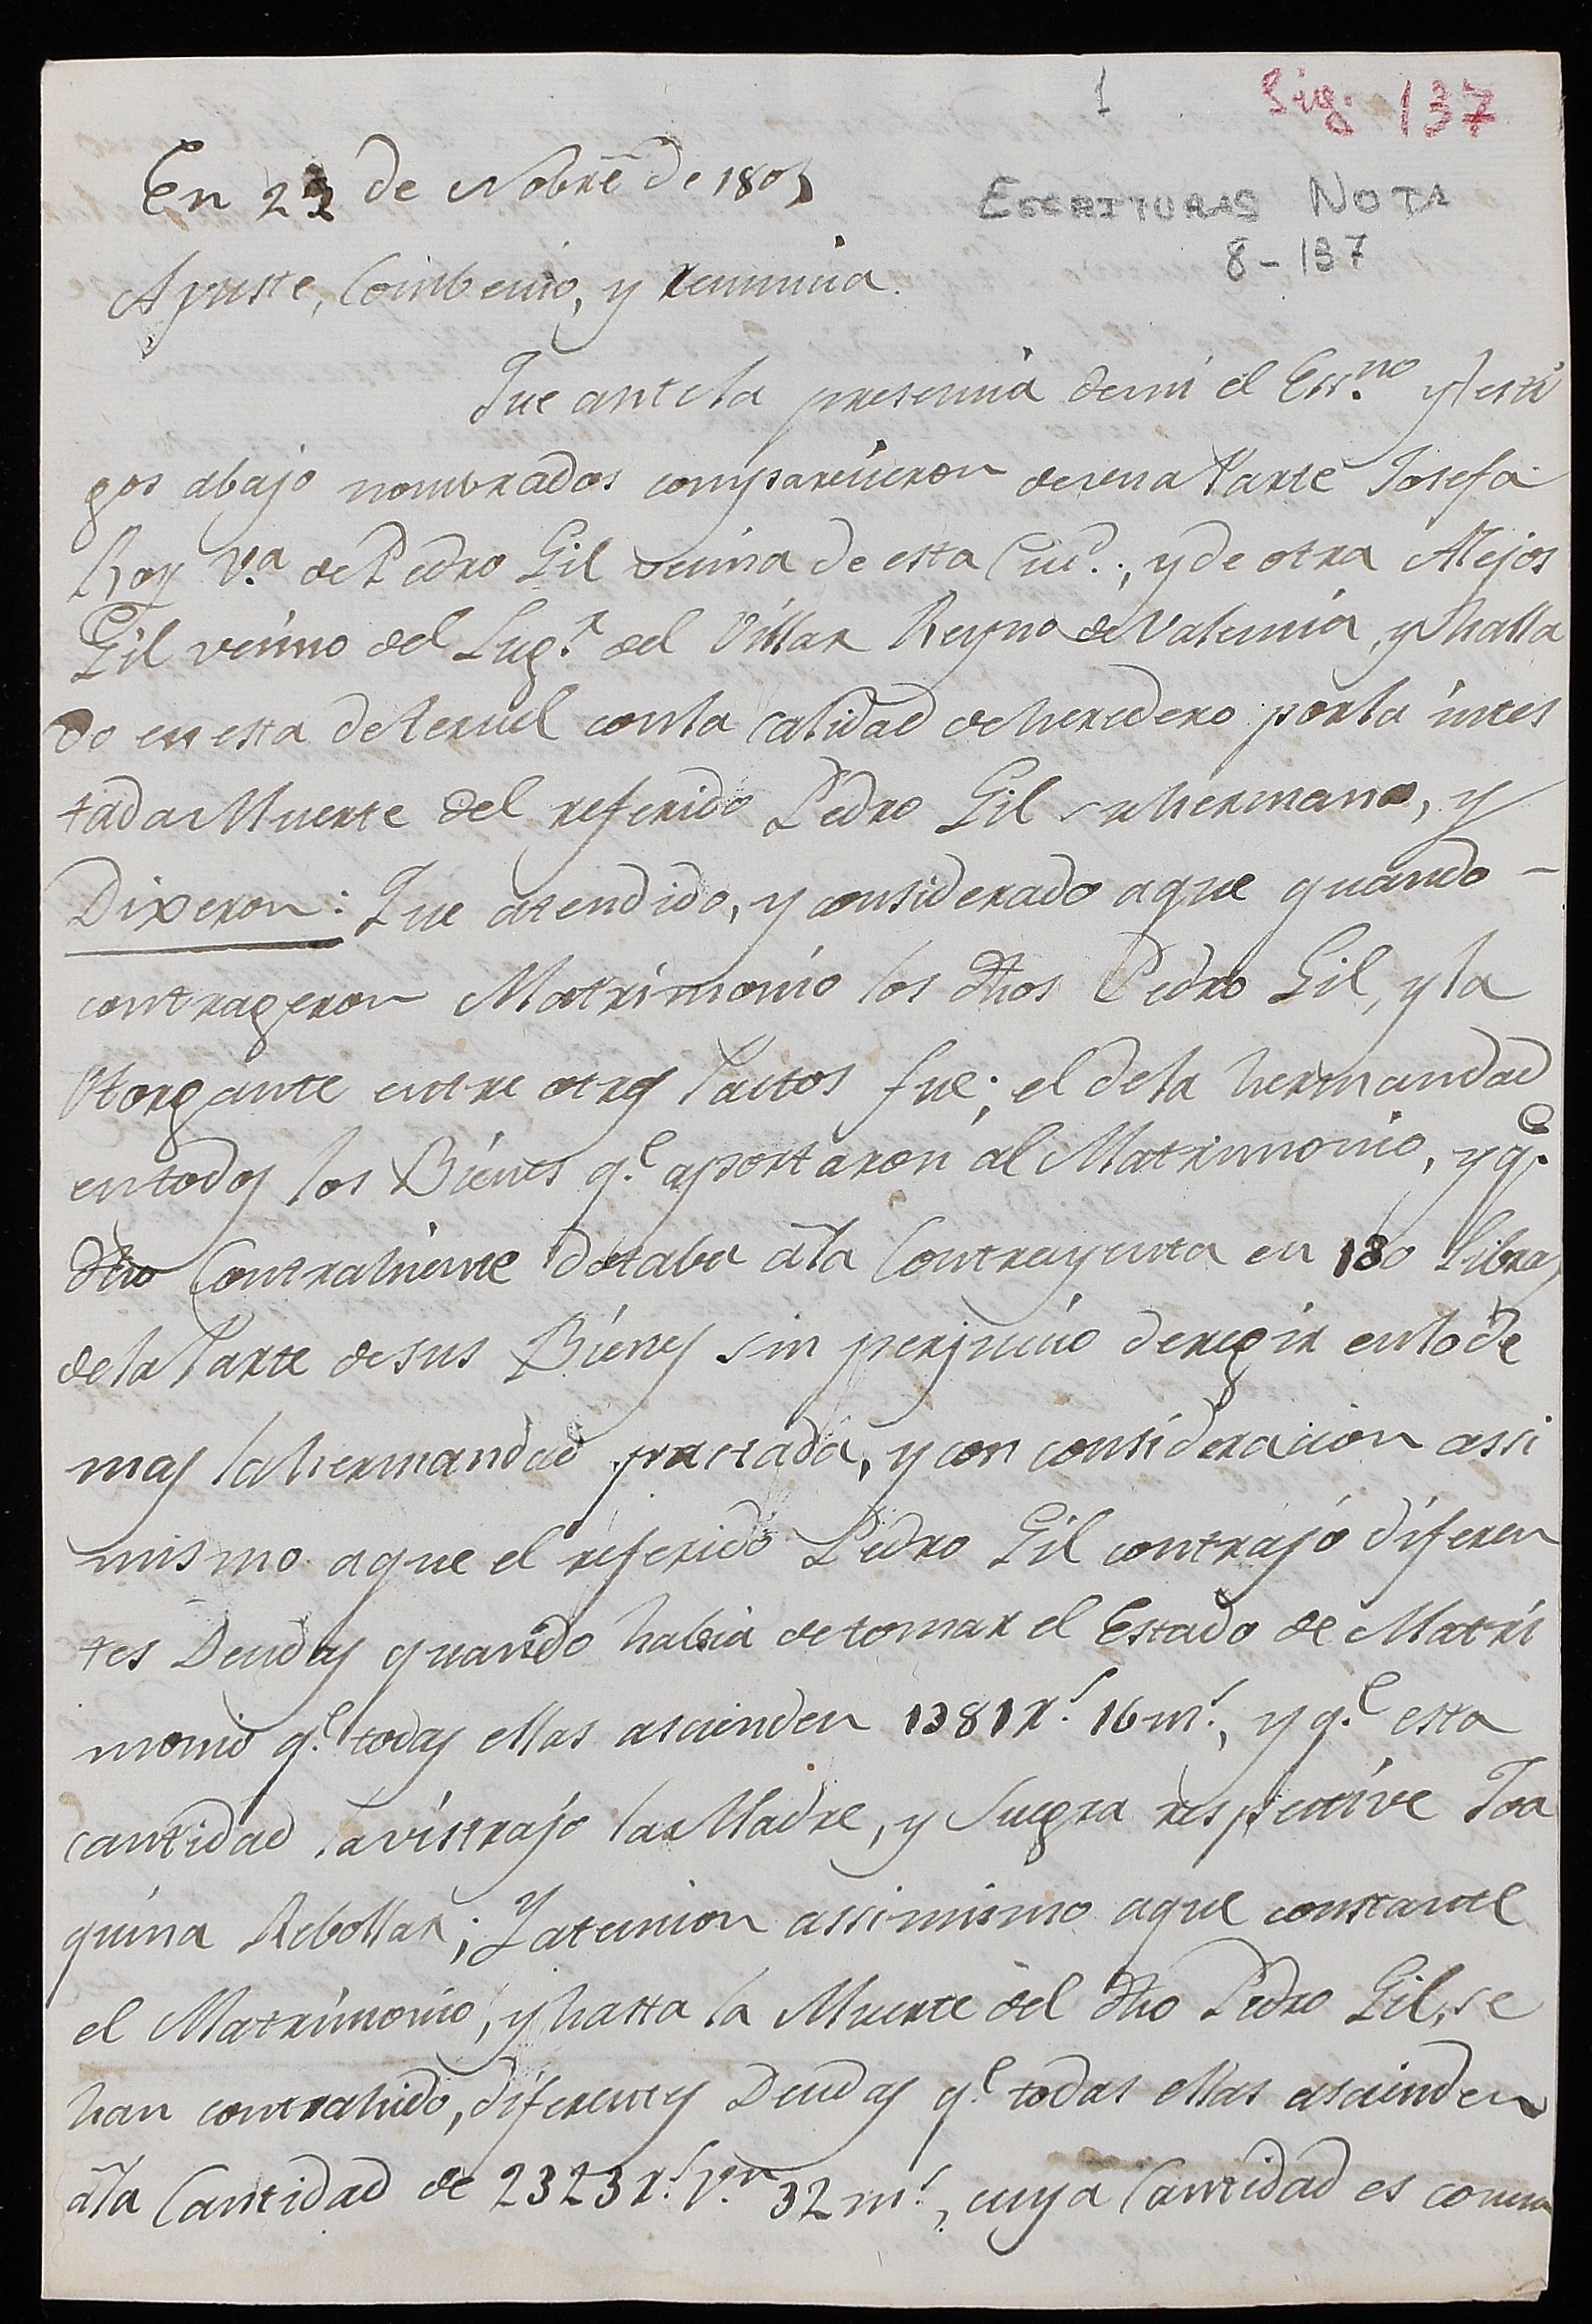 1
Sig. 137
En 22 de Nobrē de 1803
ESCRITURAS NOTA
8-137
Ajuste, Combenio, y renuncia.
Que ante la presencia de mi el Essno. y testi
gos abajo nombrados comparecieron de una Parte Josefa
Roy V.a de Pedro Gil vecina de esta Ciud., y de otra Alejos
Gil vecino del Lugr. del Villar Reyno de Valencia, y halla
do en esta de Teruel con la calidad de heredero por la intes
tada Muerte del referido Pedro Gil su hermano, y
Dixeron: Que atendido, y considerado a que quando -
contrageron Matrimonio los dhos Pedro Gil, y la
Otorgante entre otros Pactos fue; el de la hermandad
en todos los Bienes q.e aportaron al Matrimonio, y q.e
dho Contrahiente dotaba a la Contrayenta en 130 Libras
de la Parte de sus Bienes sin perjuicio de regir en lo de
mas la hermandad pactada, y con consideracion assi
mismo a que el referido Pedro Gil contrajó diferen
tes Deudas quando habia de tomar el Estado de Matri
monio q.e todas ellas ascienden 1381 r.s 16 m.s, y q.e esta
cantidad la vistrajo la Madre, y Suegra respective Joa
quina Rebollar; Y atencion assimismo a que constante
el Matrimonio, y hasta la Muerte del dho Pedro Gil, se
han contrahido, diferentes Deudas q.e todas ellas ascienden
a la Cantidad de 2323 r.s V.n 32 m.s, cuya Cantidad es comun